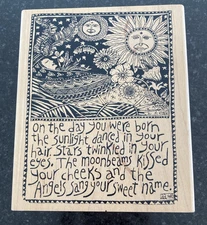 on the day you were born
the sunlight danced in your
hair. Stars twinkled in your
eyes. The moonbeams kissed
your cheeks and the
Angels sang your sweet name.